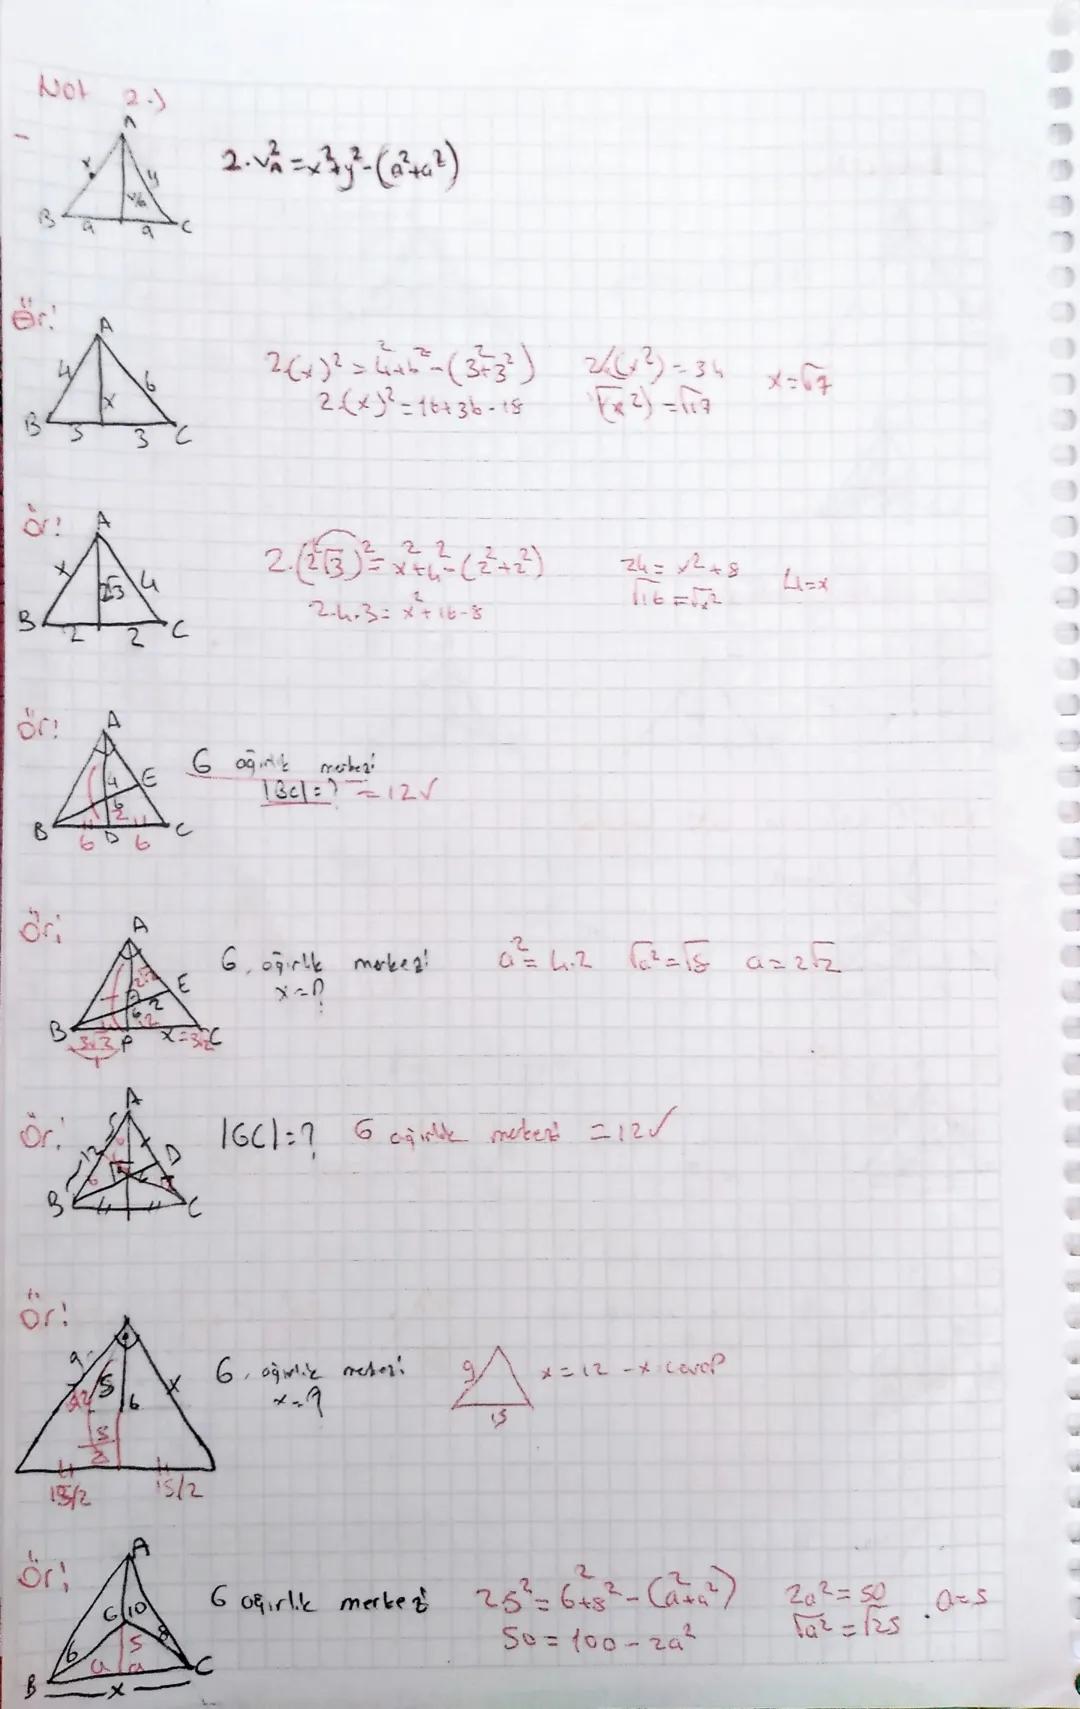 Not 2.)
A
x y
Va
B a a C
2.Va² = x²+y²-(a²+a²)
Ör:
A
4 6
x
B 3 3 C
2(x)² = 4²+6²-(3²+3²)
2.(x)² = 16+36-18
2(x²) = 34
√(x²) = √17
x=√17
Ör:
A
x 2√3 4
B 2 2 C
2.(2√3)² = x²+4²-(2²+2²)
2.4.3 = x²+16-8
24 = x²+8
√16 = √x²
4=x
Ör:
A
4 E
G
2
B 6 D 6 C
G ağırlık merkezi
|BC|=? = 12✓
Ör:
A
2√2 E
G 2
√2
B 3√2 P x=3√2 C
G, ağırlık merkezi
x=?
a² = 4.2 √a² = √8 a=2√2
Ör:
A
12 D
6
B C
|GC|=? G ağırlık merkezi = 12✓
Ör:
9 5 x
G
5/2
15/2 15/2
G, ağırlık merkezi
x=?
9
15
x=12 -x cevap
Ör:
A
G 10
6 5 8
a a
B x C
G ağırlık merkezi
2.5² = 6²+8²-(a²+a²)
50 = 100-2a²
2a² = 50
√a² = √25
a=5